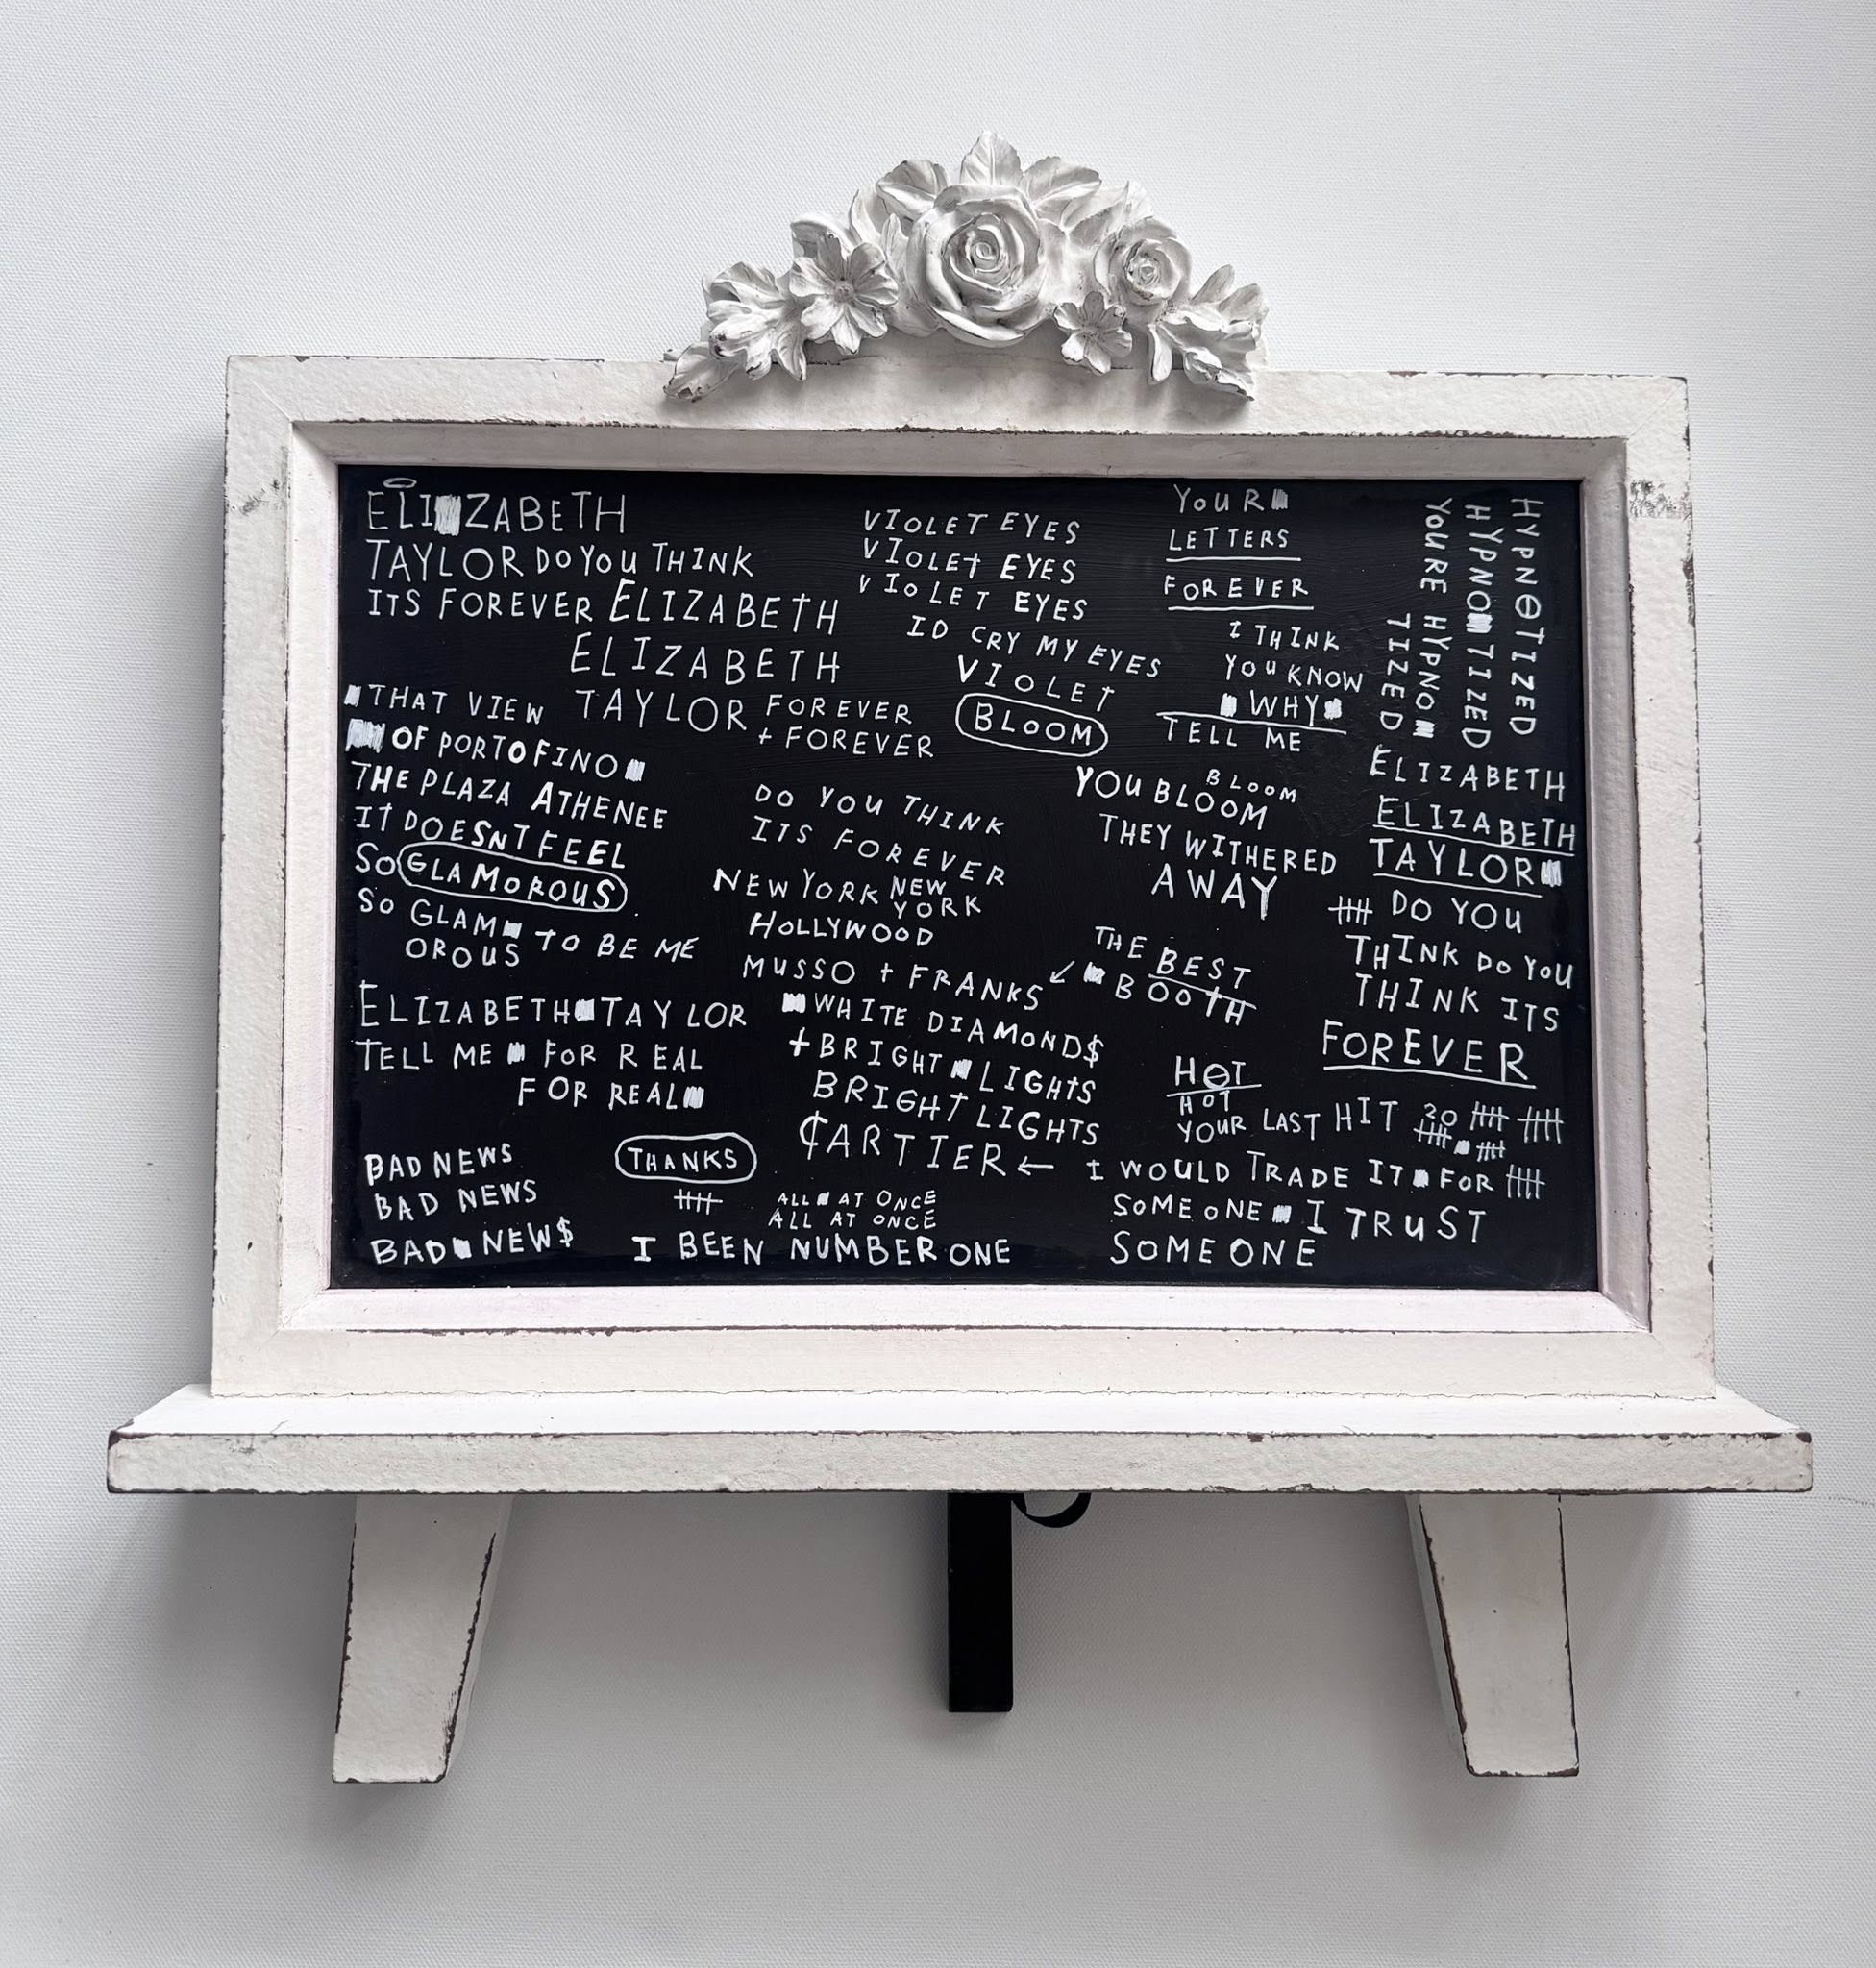 ELIZABETH
TAYLOR DO YOU THINK
ITS FOREVER ELIZABETH
ELIZABETH
TAYLOR FOREVER
+ FOREVER
THAT VIEW
OF PORTOFINO
THE PLAZA ATHENEE
IT DOESNT FEEL
SO GLAMOROUS
SO GLAM
OROUS TO BE ME
ELIZABETH TAYLOR
TELL ME FOR REAL
FOR REAL
BAD NEWS
BAD NEWS
BAD NEW$
THANKS
ALL AT ONCE
ALL AT ONCE
I BEEN NUMBER ONE
VIOLET EYES
VIOLET EYES
VIOLET EYES
ID CRY MY EYES
VIOLET
BLOOM
DO YOU THINK
ITS FOREVER
NEW YORK NEW
YORK
HOLLYWOOD
MUSSO + FRANKS
THE BEST
BOOTH
WHITE DIAMOND$
+ BRIGHT LIGHTS
BRIGHT LIGHTS
¢ARTIER ←
YOUR
LETTERS
FOREVER
I THINK
YOU KNOW
WHY
TELL ME
BLOOM
YOU BLOOM
THEY WITHERED
AWAY
HYPNOTIZED
HYPNOTIZED
YOURE HYPNO
TIZED
ELIZABETH
ELIZABETH
TAYLOR
DO YOU
THINK DO YOU
THINK ITS
FOREVER
HOT
HOT
YOUR LAST HIT 20
I WOULD TRADE IT FOR
SOMEONE I TRUST
SOMEONE